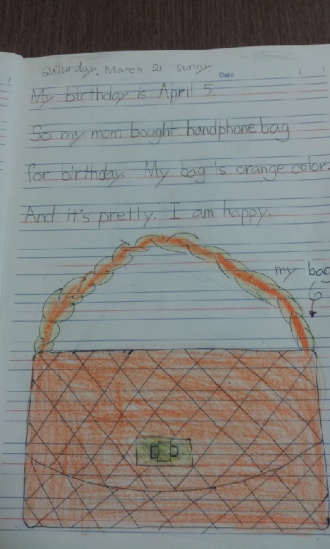 Saturday. March 21 sunny
Date
My birthday is April 5.
So my mom bought handphone bag
for birthday. My bag is orange color.
And it's pretty. I am happy.
my bag